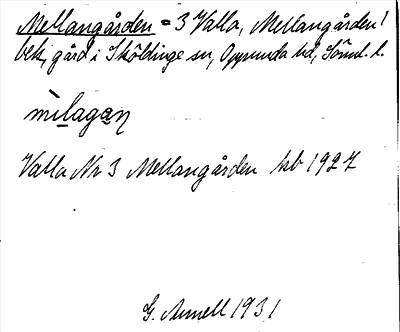 Mellangården = 3 Valla, Mellangården!
bek, gård i Sköldinge sn, Oppunda hd, Söml. l.
mìlagaɳ
Valla Nr 3 Mellangården hsb 1927
G. Annell 1931